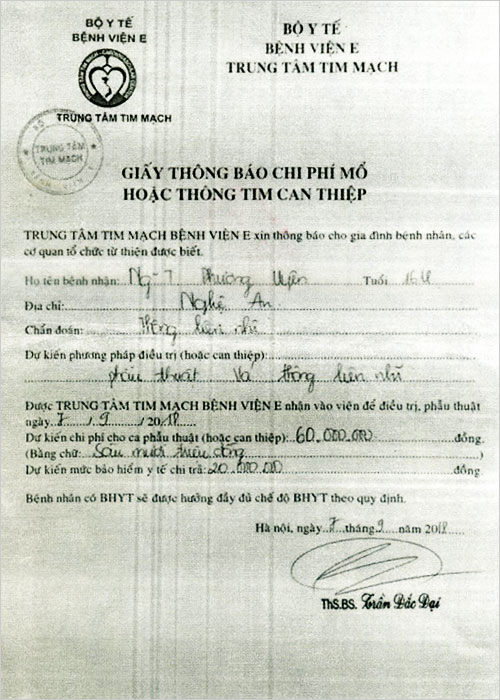 BỘ Y TẾ
BỆNH VIỆN E
TRUNG TÂM TIM MẠCH
BỘ Y TẾ
BỆNH VIỆN E
TRUNG TÂM TIM MẠCH
TRUNG TÂM
TIM MẠCH
GIẤY THÔNG BÁO CHI PHÍ MỔ
HOẶC THÔNG TIM CAN THIỆP
TRUNG TÂM TIM MẠCH BỆNH VIỆN E xin thông báo cho gia đình bệnh nhân, các
cơ quan tổ chức từ thiện được biết.
Họ tên bệnh nhân: Ng-T Phương Uyên Tuổi 16
Địa chỉ: Nghệ An
Chẩn đoán: Thông liên nhĩ
Dự kiến phương pháp điều trị (hoặc can thiệp):
phẫu thuật Vá thông liên nhĩ
Được TRUNG TÂM TIM MẠCH BỆNH VIỆN E nhận vào viện để điều trị, phẫu thuật
ngày 7 / 9 / 2018
Dự kiến chi phí cho ca phẫu thuật (hoặc can thiệp): 60.000.000 đồng.
(Bằng chữ: Sáu mươi triệu đồng )
Dự kiến mức bảo hiểm y tế chi trả: 20.000.000 đồng.
Bệnh nhân có BHYT sẽ được hưởng đầy đủ chế độ BHYT theo quy định.
Hà nội, ngày 7 tháng 9 năm 2018
ThS.BS. Trần Đắc Đại